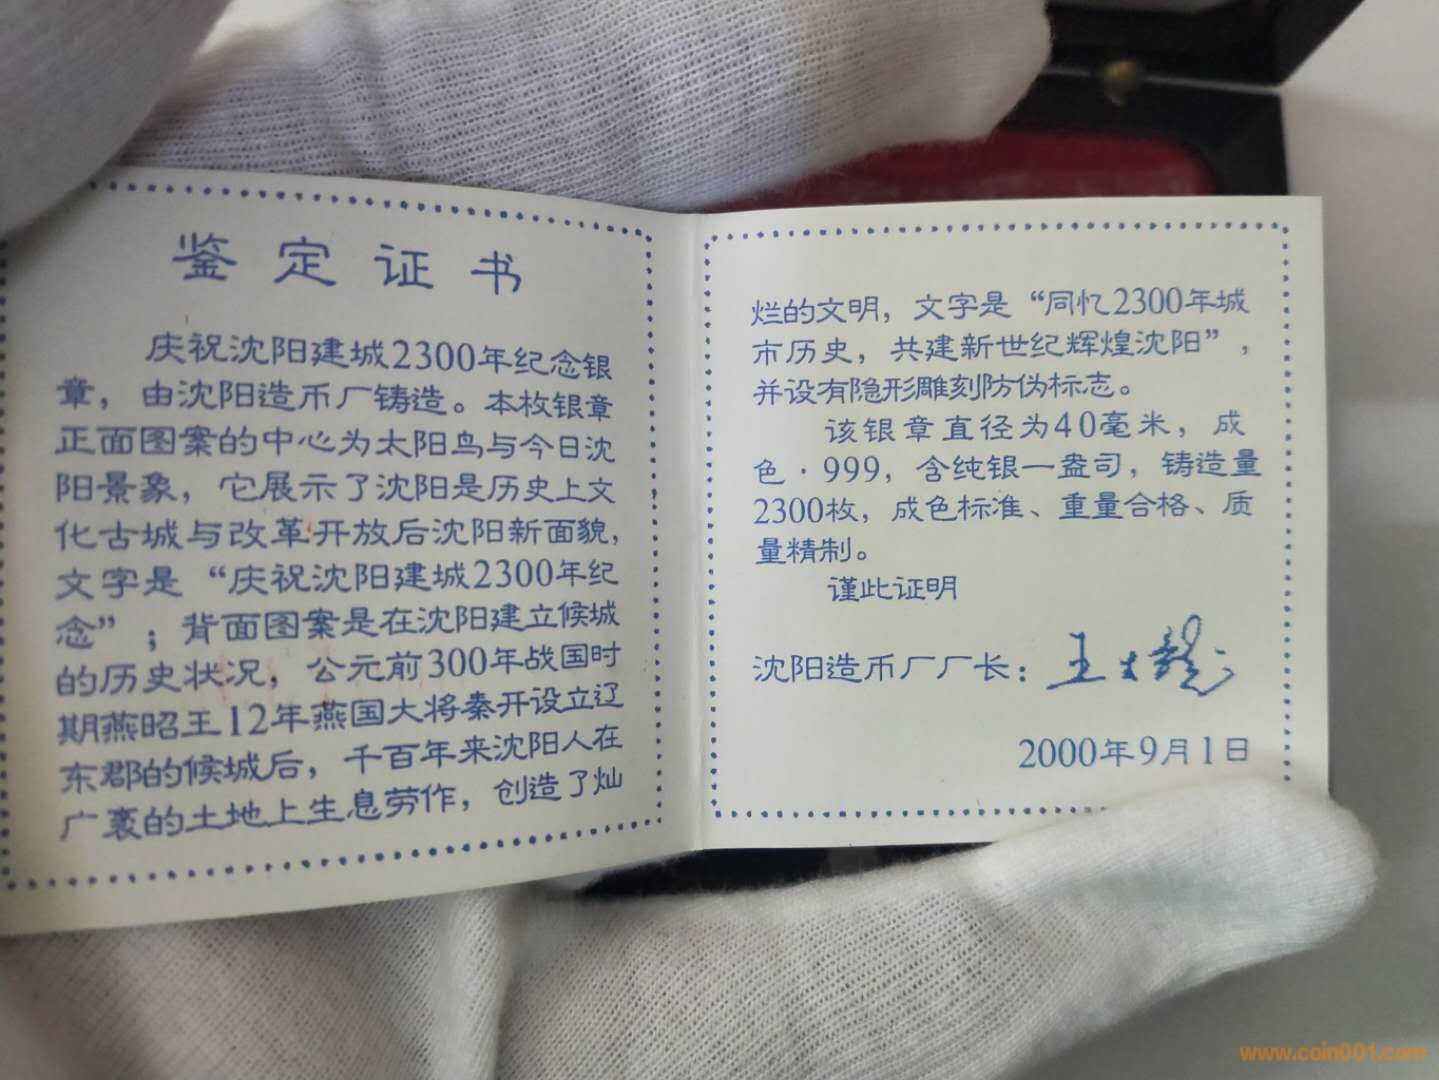 鉴定证书
庆祝沈阳建城2300年纪念银
章，由沈阳造币厂铸造。本枚银章
正面图案的中心为太阳鸟与今日沈
阳景象，它展示了沈阳是历史上文
化古城与改革开放后沈阳新面貌，
文字是“庆祝沈阳建城2300年纪
念”；背面图案是在沈阳建立候城
的历史状况，公元前300年战国时
期燕昭王12年燕国大将秦开设立辽
东郡的候城后，千百年来沈阳人在
广袤的土地上生息劳作，创造了灿
烂的文明，文字是“同忆2300年城
市历史，共建新世纪辉煌沈阳”，
并设有隐形雕刻防伪标志。
该银章直径为40毫米，成
色·999，含纯银一盎司，铸造量
2300枚，成色标准、重量合格、质
量精制。
谨此证明
沈阳造币厂厂长：王大龙
2000年9月1日
www.coin001.com